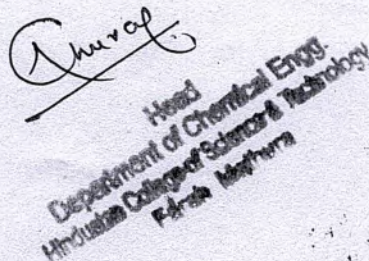 Head
Department of Chemical Engg.
Hindustan College of Science & Technology
Farah Mathura